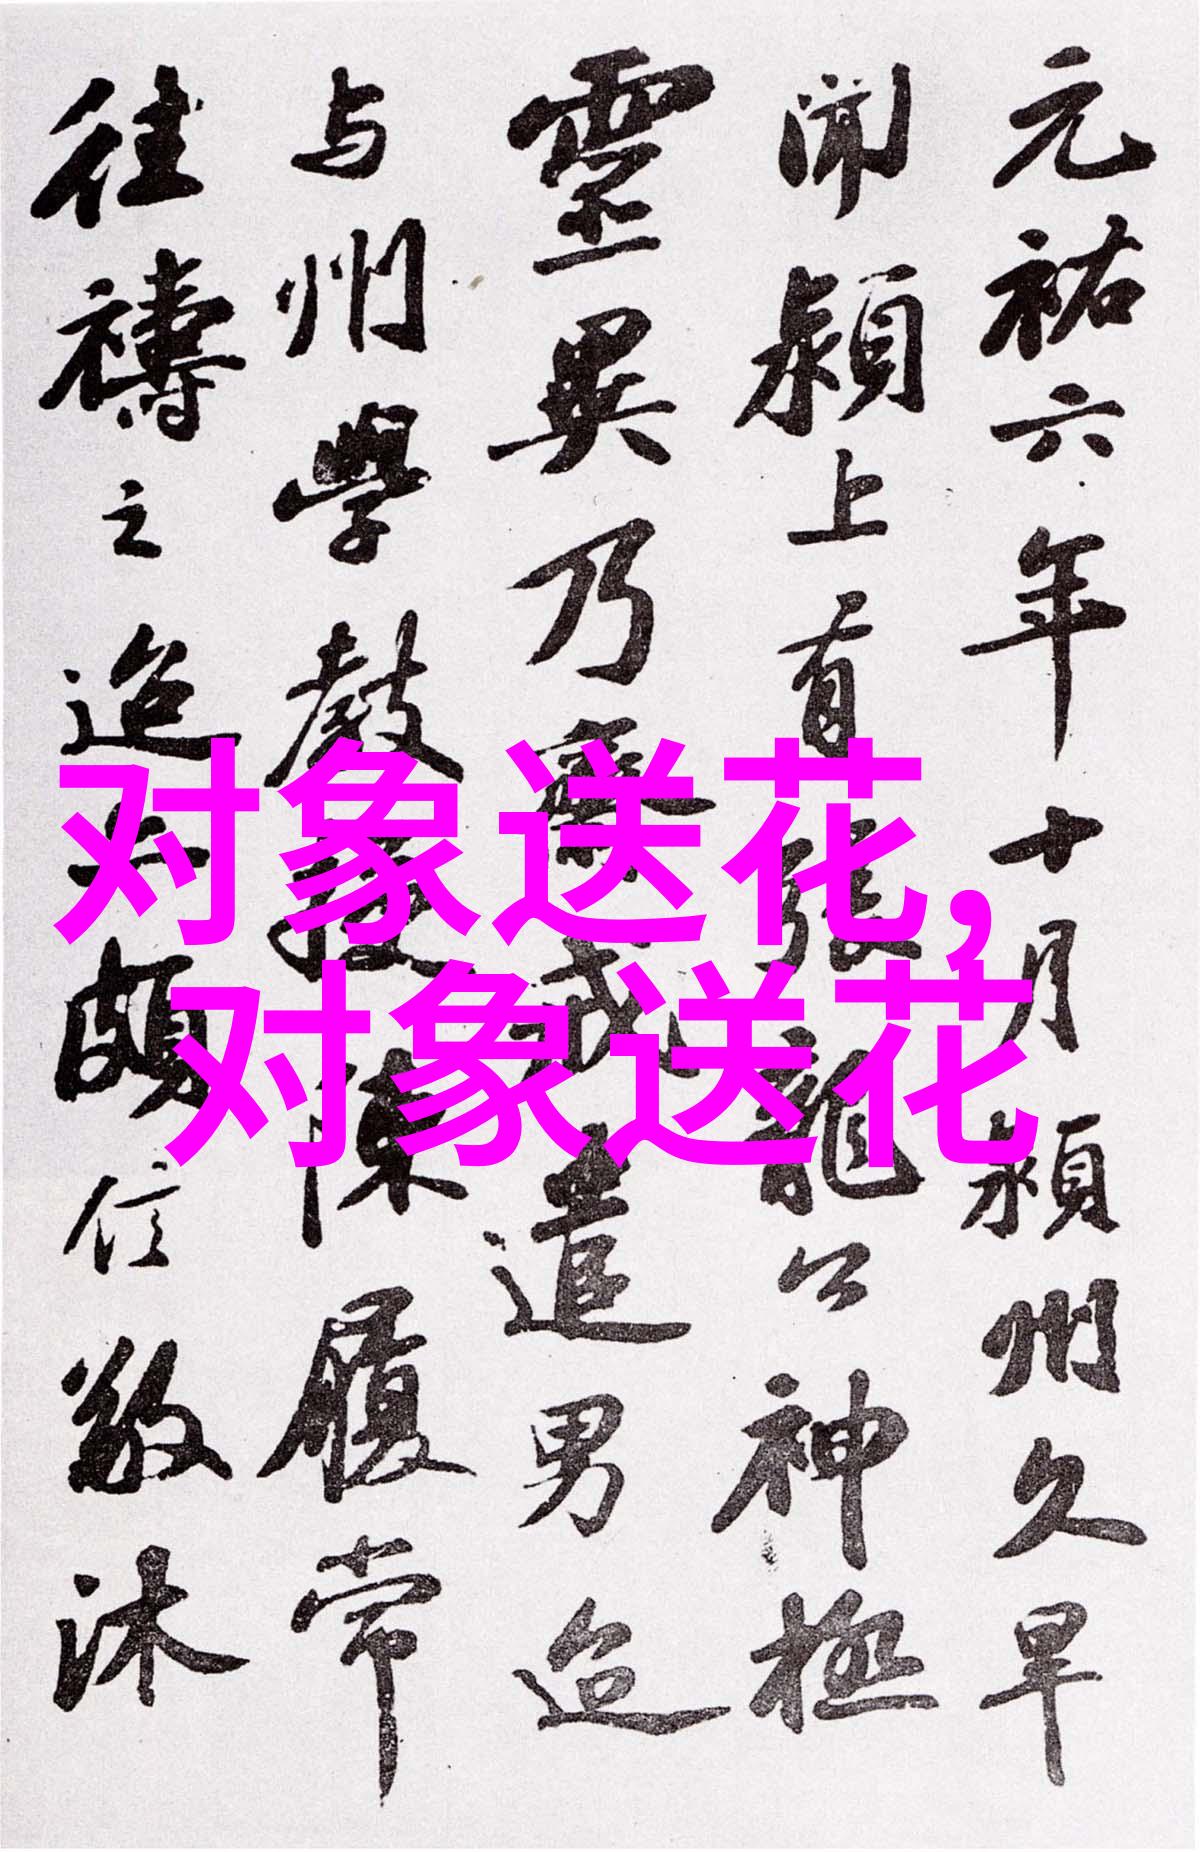 元祐六年十月潁州久旱
聞潁上有張龍公神極
靈異乃齋戒遣男迨
与州學教授陳履常
往禱之迨亦頗信敬沐
对象送花,
对象送花